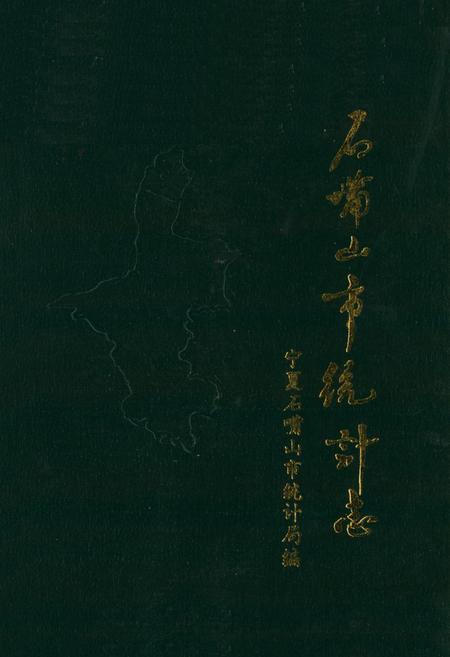 石嘴山市统计志
宁夏石嘴山市统计局编